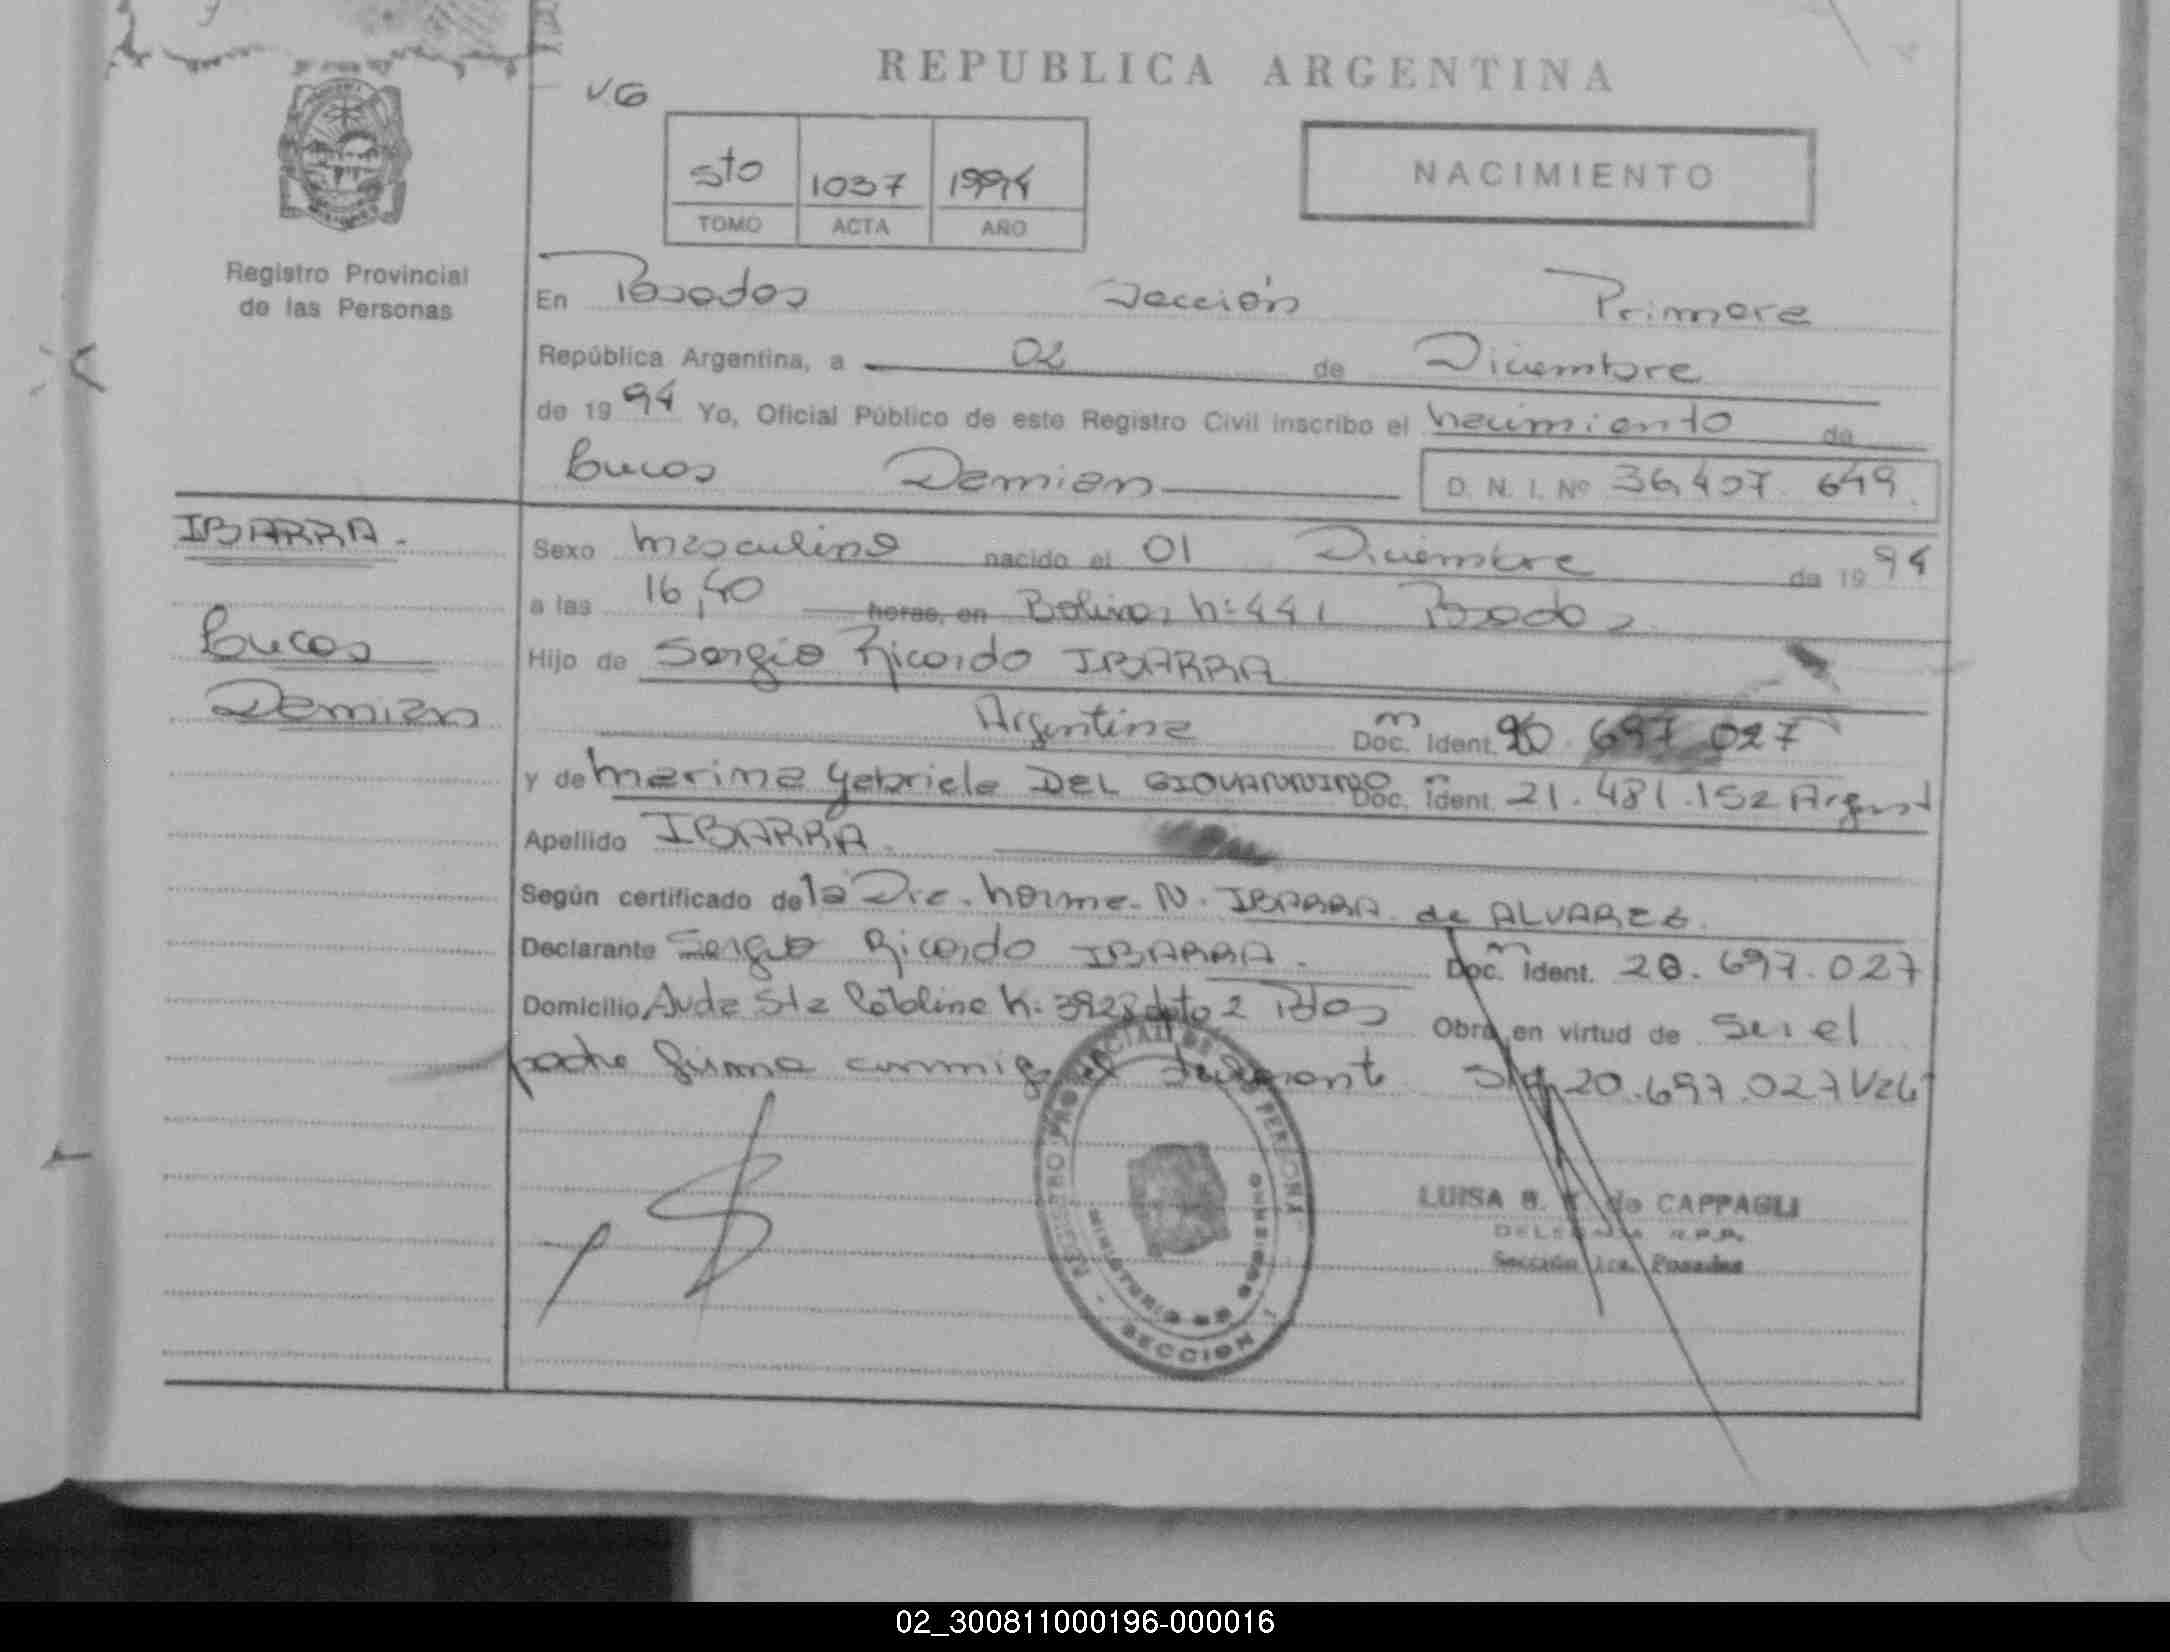 REPUBLICA ARGENTINA
VG
5to 1037 1994
TOMO ACTA AÑO
NACIMIENTO
Registro Provincial
de las Personas
En Posadas Sección Primera
República Argentina, a 02 de Diciembre
de 1994 Yo, Oficial Público de este Registro Civil inscribo el nacimiento de
Lucas Demian D. N. I. Nº 36.407.649.
IBARRA.
Lucas
Demian
Sexo masculino nacido el 01 Diciembre de 1994
a las 16,40 horas, en Bolivar Nº 441 Posadas
Hijo de Sergio Ricardo IBARRA
Argentina Doc. Ident. 20.697.027
y de Marina Gabriela DEL GIOVANNINO Doc. Ident. 21.481.152 Argent
Apellido IBARRA.
Según certificado de la Dra. Norma N. IBARRA de ALVAREZ.
Declarante Sergio Ricardo IBARRA. Doc. Ident. 20.697.027
Domicilio Avda Sta Catalina N: 3928 dpto 2 Pdas Obra en virtud de ser el
padre firma conmigo el declarante S/r 20.697.027 Vale
REGISTRO PROVINCIAL DE LAS PERSONAS
MINISTERIO DE GOBIERNO
SECCION 1
LUISA B. de CAPPAGLI
DELEGADA R.P.P.
Sección 1ra. Posadas
02_300811000196-000016